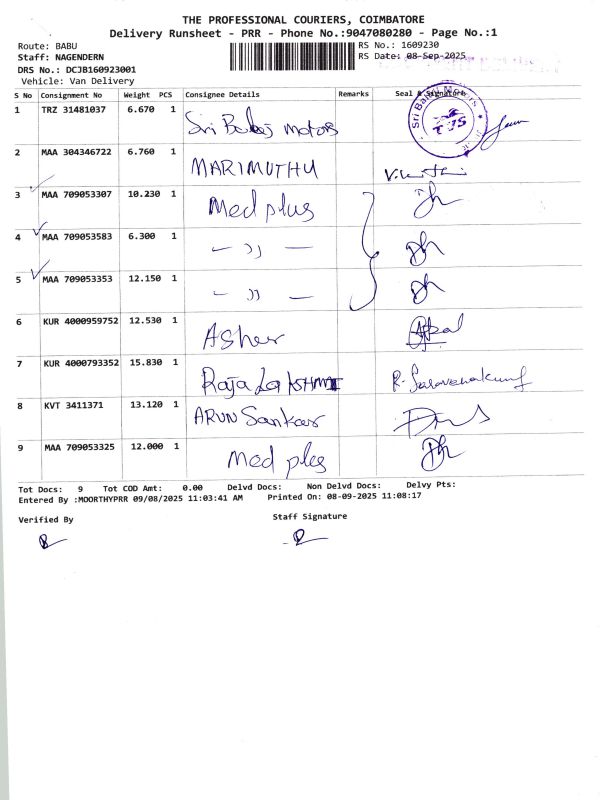 THE PROFESSIONAL COURIERS, COIMBATORE
Delivery Runsheet - PRR - Phone No.:9047080280 - Page No.:1
Route: BABU RS No.: 1609230
Staff: NAGENDERN RS Date: 08-Sep-2025
DRS No.: DCJB160923001
Vehicle: Van Delivery
S No Consignment No Weight PCS Consignee Details Remarks Seal & Signature
1 TRZ 31481037 6.670 1 Sri Balaji Motors
2 MAA 304346722 6.760 1 MARIMUTHU
3 MAA 709053307 10.230 1 Med plus
4 MAA 709053583 6.300 1 — 〃 —
5 MAA 709053353 12.150 1 — 〃 —
6 KUR 4000959752 12.530 1 Asher
7 KUR 4000793352 15.830 1 Raja Lakshmi R. Saravanakumar
8 KVT 3411371 13.120 1 ARUN Sankar
9 MAA 709053325 12.000 1 Med plus
Tot Docs: 9 Tot COD Amt: 0.00 Delvd Docs: Non Delvd Docs: Delvy Pts:
Entered By :MOORTHYPRR 09/08/2025 11:03:41 AM Printed On: 08-09-2025 11:08:17
Verified By Staff Signature